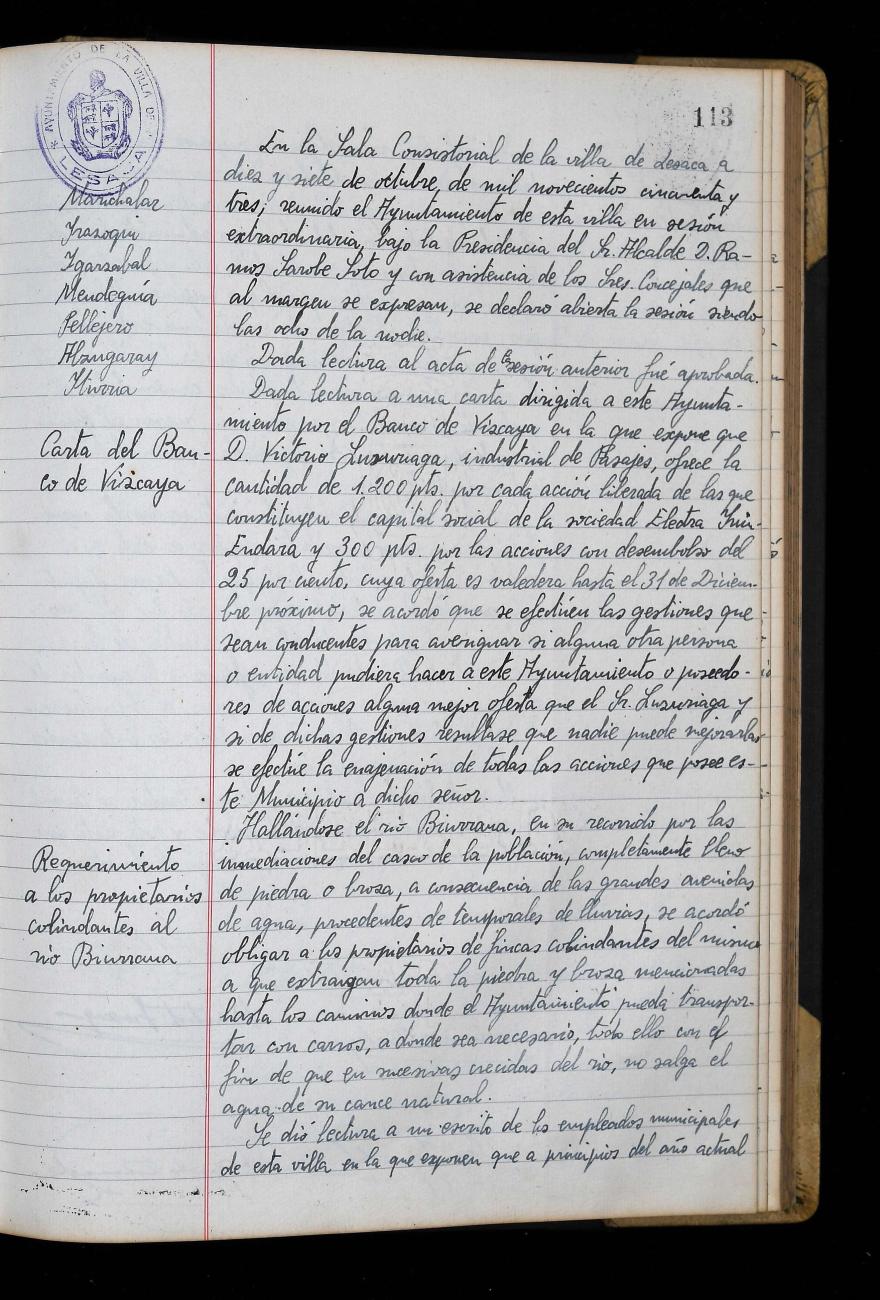 113
* AYUNTAMIENTO DE LA VILLA DE *
LESACA
En la Sala Consistorial de la villa de Lesaca a
diez y siete de octubre, de mil novecientos cincuenta y
tres; reunido el Ayuntamiento de esta villa en sesión
extraordinaria, bajo la Presidencia del Sr. Alcalde D. Ra-
mos Sarobe Soto y con asistencia de los Sres. Concejales que
al margen se expresan, se declaró abierta la sesión siendo
las ocho de la noche.
Marichalar
Irazoqui
Igarzabal
Mendeguía
Pellejero
Alzugaray
Iturria
Dada lectura al acta de la sesión anterior fué aprobada.
Carta del Ban-
co de Vizcaya
Dada lectura a una carta dirigida a este Ayunta-
miento por el Banco de Vizcaya en la que expone que
D. Victorio Luzuriaga, industrial de Pasajes, ofrece la
cantidad de 1.200 pts. por cada acción liberada de las que
constituyen el capital social de la sociedad Electra Irún-
Endara y 300 pts. por las acciones con desembolso del
25 por ciento, cuya oferta es valedera hasta el 31 de Diciem-
bre próximo, se acordó que se efectúen las gestiones que
sean conducentes para averiguar si alguna otra persona
o entidad pudiera hacer a este Ayuntamiento o poseedo-
res de acciones alguna mejor oferta que el Sr. Luzuriaga y
si de dichas gestiones resultase que nadie puede mejorarlas
se efectúe la enajenación de todas las acciones que posee es-
te Municipio a dicho señor.
Requerimiento
a los propietarios
colindantes al
rio Biurrana
Hallándose el rio Biurrana, en su recorrido por las
inmediaciones del casco de la población, completamente lleno
de piedra o broza, a consecuencia de las grandes avenidas
de agua, procedentes de temporales de lluvias, se acordó
obligar a los propietarios de fincas colindantes del mismo
a que extraigan toda la piedra y broza mencionadas
hasta los caminos donde el Ayuntamiento pueda transpor-
tar con carros, a donde sea necesario, todo ello con el
fin de que en sucesivas crecidas del rio, no salga el
agua de su cauce natural.
Se dió lectura a un escrito de los empleados municipales
de esta villa en la que exponen que a principios del año actual